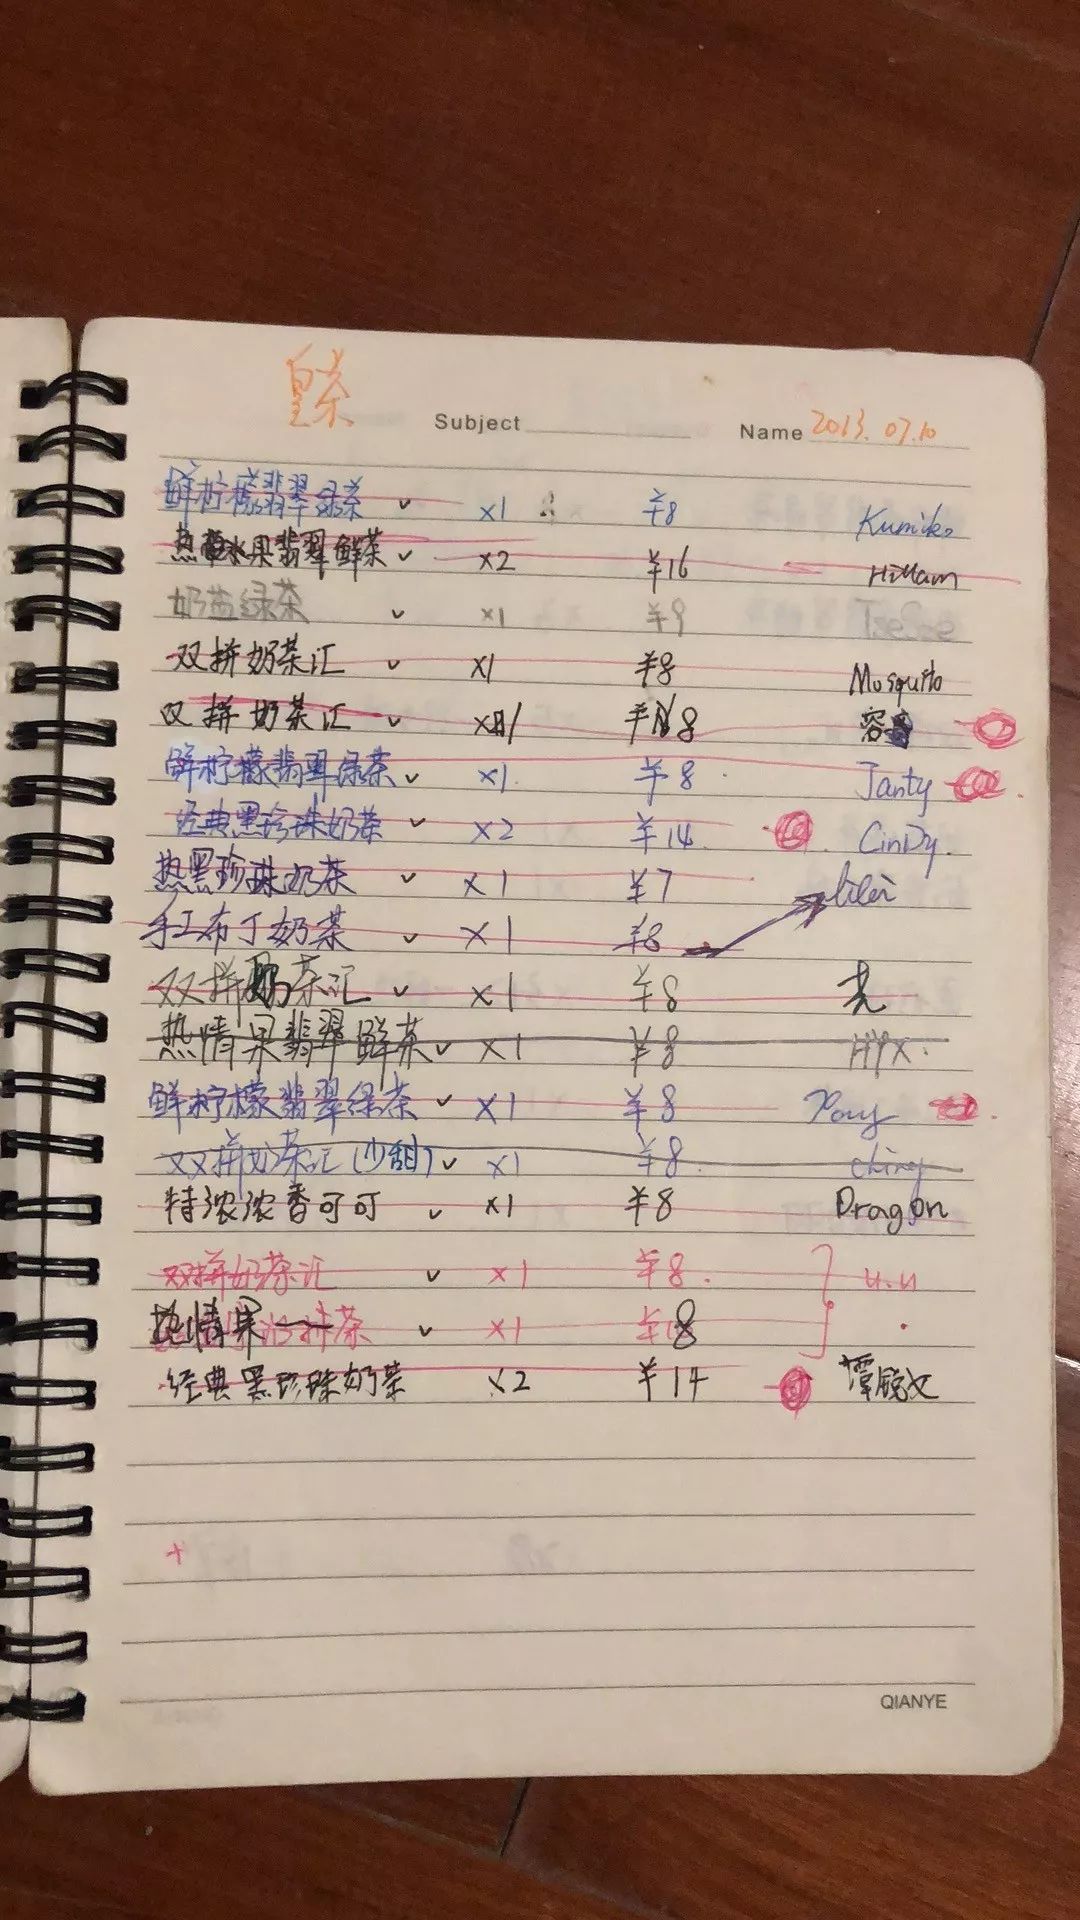 皇茶 Subject Name 2013.07.10
鲜柠檬翡翠绿茶 ✓ ×1 ¥8 Kumiko
热水果翡翠鲜茶 ✓ ×2 ¥16
奶盐绿茶 ✓ ×1 ¥9
双拼奶茶汇 ✓ ×1 ¥8 Mosquito
双拼奶茶汇 ✓ ×1 ¥8 容
鲜柠檬翡翠绿茶 ✓ ×1 ¥8 Janty
经典黑珍珠奶茶 ✓ ×2 ¥14 CinDy
热黑珍珠奶茶 ✓ ×1 ¥7 lilei
手工布丁奶茶 ✓ ×1 ¥8
双拼奶茶汇 ✓ ×1 ¥8
热情果翡翠鲜茶 ✓ ×1 ¥8 HYX
鲜柠檬翡翠绿茶 ✓ ×1 ¥8 Pony
双拼奶茶汇(少甜) ✓ ×1 ¥8 ching
特浓浓香可可 ✓ ×1 ¥8 Dragon
双拼奶茶汇 ✓ ×1 ¥8 u.u
热情果 茶 ✓ ×1 ¥8
经典黑珍珠奶茶 ×2 ¥14 谭锐文
+
QIANYE